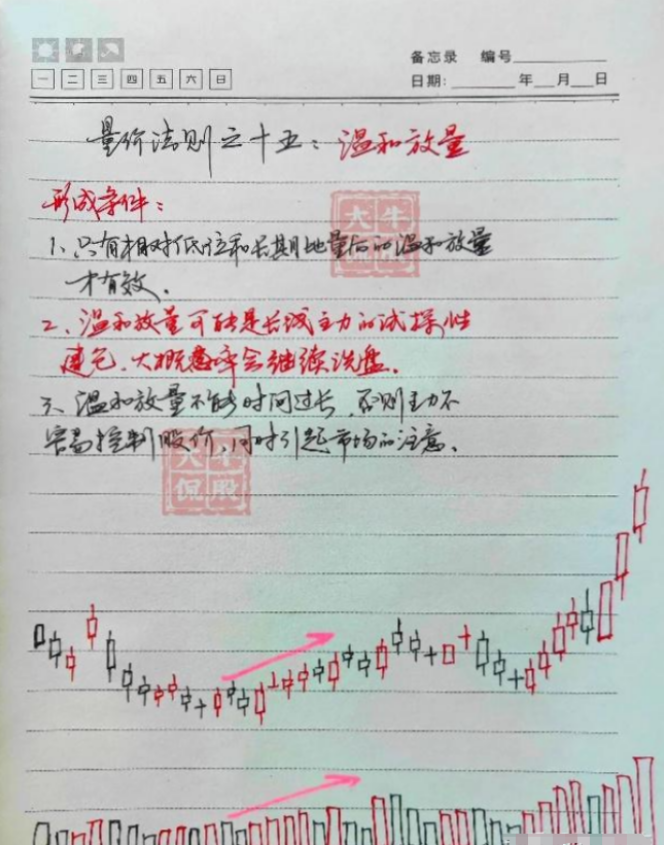 备忘录 编号
一 二 三 四 五 六 日
日期: 年 月 日
量价法则之十五：温和放量
形成条件：
大牛
1、只有相对低位和长期地量后的温和放量
才有效.
2、温和放量可能是长线主力的试探性
建仓、大概率会继续洗盘.
3、温和放量不能时间过长、否则主力不
容易控制股价,同时引起市场的注意.
大牛
侃股